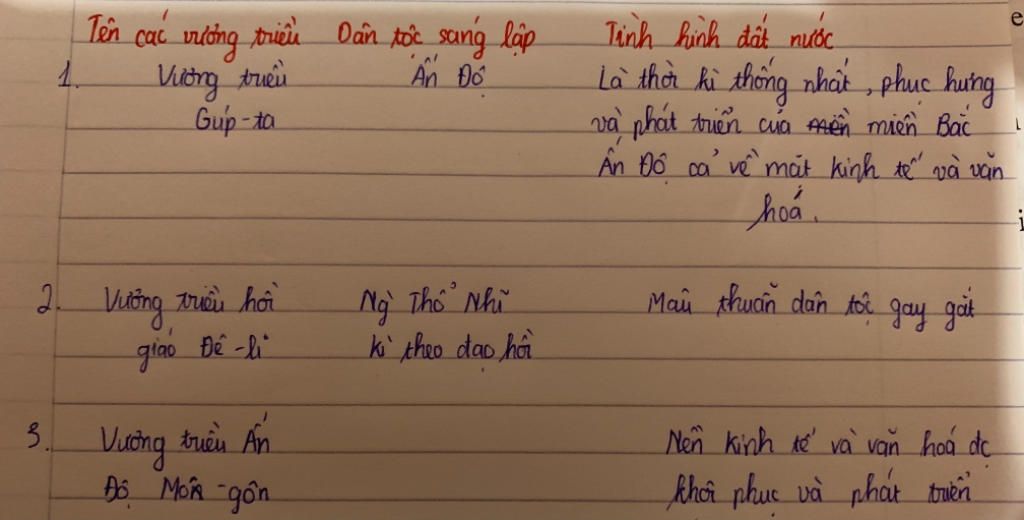 Tên các vương triều Dân tộc sáng lập Tình hình đất nước
1. Vương triều Ấn Độ Là thời kì thống nhất, phục hưng
Gúp-ta và phát triển của miền Bắc
Ấn Độ cả về mặt kinh tế và văn
hoá.
2. Vương triều hồi Ng` Thổ Nhĩ Mâu thuẫn dân tộc gay gắt
giáo Đê-li kì theo đạo hồi
3. Vương triều Ấn Nền kinh tế và văn hoá đc
Độ Môn-gôn khôi phục và phát triển
e